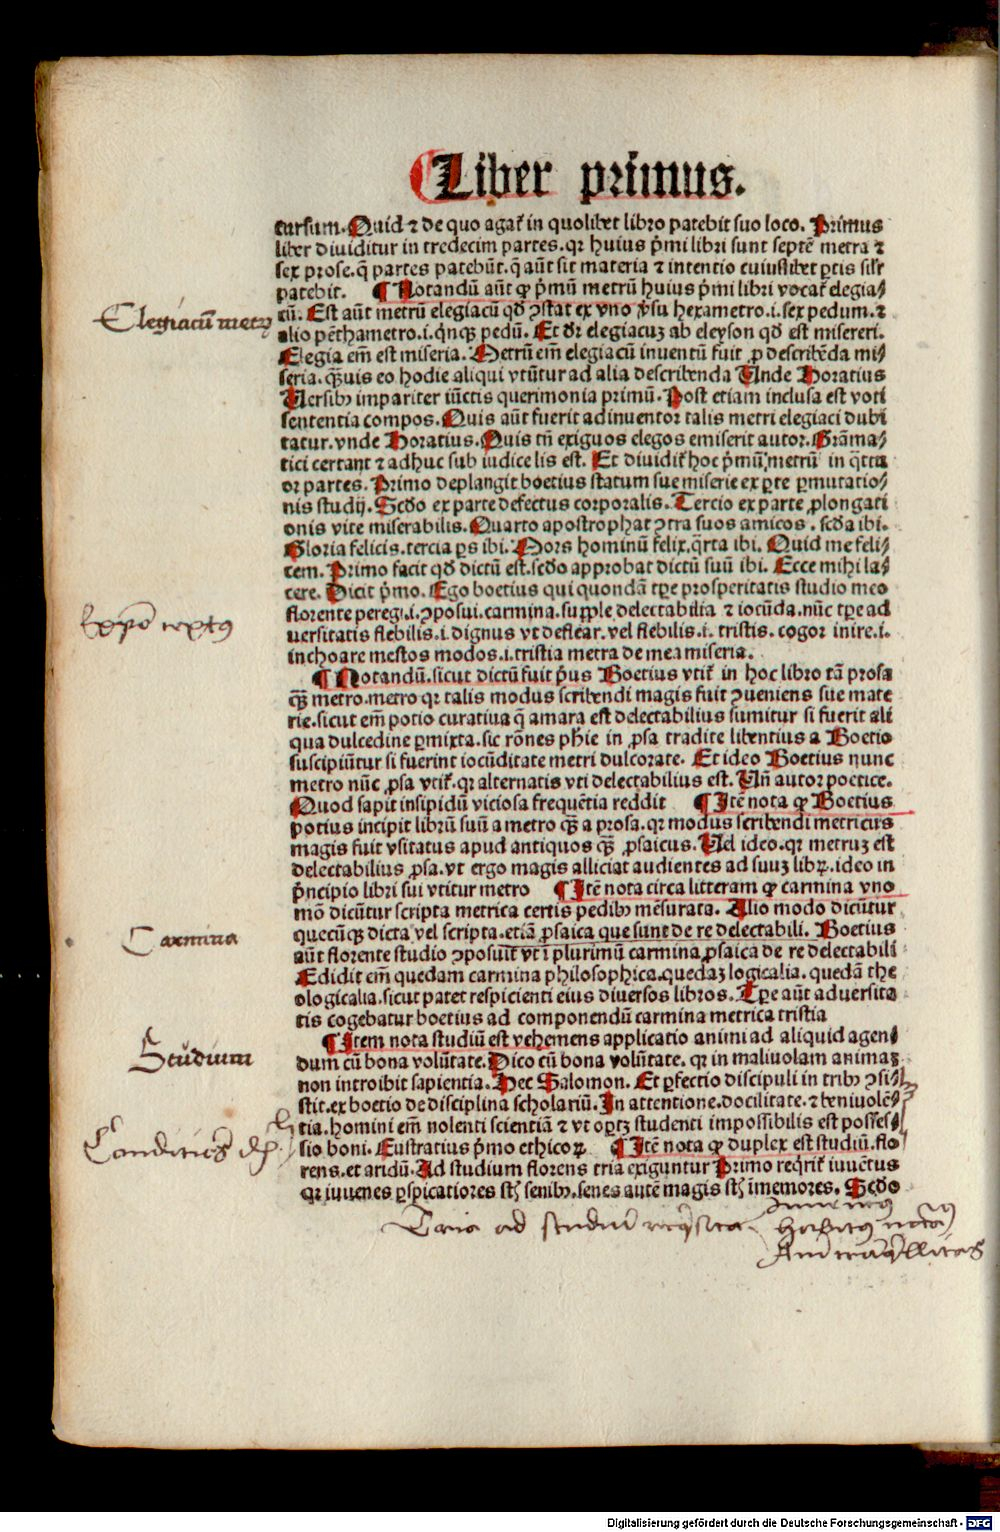 Liber primus.
cursum. Quid ⁊ de quo agat̄ in quolibet libro patebit suo loco. Primus
liber diuiditur in tredecim partes. qꝛ huius p̄mi libri sunt septē metra ⁊
sex prose. q̄ partes patebūt. q̄ aūt sit materia ⁊ intentio cuiuslibet ꝑtis sil'r
patebit. ¶ Notandū aūt ꝙ p̄mū metrū huius p̄mi libri vocat̄ elegia⸗
cū. Est aūt metrū elegiacū qd̄ ꝯstat ex vno v̓su hexametro .i. sex pedum. ⁊
alio pēthametro .i. q̓nqꝫ pedū. Et dr̄ elegiacuꝫ ab eleyson qd̄ est misereri.
Elegia em̄ est miseria. Metrū em̄ elegiacū inuentū fuit ꝓ describēda mi⸗
seria. qꝫuis eo hodie aliqui vtūtur ad alia describenda Unde Horatius
Uersibꝫ impariter iūctis querimonia primū. Post etiam inclusa est voti
sententia compos. Quis aūt fuerit adinuentor talis metri elegiaci dubi
tatur. vnde Horatius. Quis tn̄ exiguos elegos emiserit autor. Grāma⸗
tici certant ⁊ adhuc sub iudice lis est. Et diuidit̄ hoc p̄mū metrū in q̄ttu
or partes. Primo deplangit boetius statum sue miserie ex ꝑte ꝑmutatio⸗
nis studij. Scdo ex parte defectus corporalis. Tercio ex parte ꝓlongati
onis vite miserabilis. Quarto apostrophat ꝯtra suos amicos. scda ibi.
Gloria felicis. tercia ꝑs ibi. Mors hominū felix. q̄rta ibi. Quid me feli⸗
cem. Primo facit qd̄ dictū est. scdo approbat dictū suū ibi. Ecce mihi la⸗
cere. Dicit p̄mo. Ego boetius qui quondā tꝑe prosperitatis studio meo
florente peregi .i. ꝯposui. carmina. supple delectabilia ⁊ iocūda. nūc tꝑe ad
uersitatis flebilis .i. dignus vt deflear. vel flebilis .i. tristis. cogor inire .i.
inchoare mestos modos .i. tristia metra de mea miseria.
¶ Notandū. sicut dictū fuit p̄us Boetius vtit̄ in hoc libro tā prosa
qꝫ metro. metro qꝛ talis modus scribendi magis fuit ꝯueniens sue mate
rie. sicut em̄ potio curatiua q̄ amara est delectabilius sumitur si fuerit ali
qua dulcedine ꝑmixta. sic rōnes phīe in ꝓsa tradite libentius a Boetio
suscipiūtur si fuerint iocūditate metri dulcorate. Et ideo Boetius nunc
metro nūc ꝓsa vtit̄. qꝛ alternatis vti delectabilius est. Uñ autor poetice.
Quod sapit insipidū viciosa frequētia reddit ¶ Itē nota ꝙ Boetius
potius incipit librū suū a metro qꝫ a prosa. qꝛ modus scribendi metricus
magis fuit vsitatus apud antiquos qꝫ ꝓsaicus. Uel ideo. qꝛ metruꝫ est
delectabilius ꝓsa. vt ergo magis alliciat audientes ad suuꝫ libꝝ. ideo in
p̄ncipio libri sui vtitur metro ¶ Itē nota circa litteram ꝙ carmina vno
mō dicūtur scripta metrica certis pedibꝫ mēsurata. Alio modo dicūtur
quecūqꝫ dicta vel scripta. etiā ꝓsaica que sunt de re delectabili. Boetius
aūt florente studio ꝯposuit vt ī plurimū carmina ꝓsaica de re delectabili
Edidit em̄ quedam carmina philosophica. quedaꝫ logicalia. quedā the
ologicalia. sicut patet respicienti eius diuersos libros. Tꝑe aūt aduersita
tis cogebatur boetius ad componendū carmina metrica tristia
¶ Item nota studiū est vehemens applicatio animi ad aliquid agen⸗
dum cū bona volūtate. Dico cū bona volūtate. qꝛ in maliuolam animaꝫ
non introibit sapientia. Hec Salomon. Et ꝑfectio discipuli in tribꝫ ꝯsi⸗
stit. ex boetio de disciplina scholariū. In attentione. docilitate. ⁊ beniuolē⸗
tia. homini em̄ nolenti scientiā ⁊ vt oꝑtꝫ studenti impossibilis est posses⸗
sio boni. Eustratius p̄mo ethicoꝝ. ¶ Itē nota ꝙ duplex est studiū. flo
rens. et aridū. Ad studium florens tria exiguntur Primo req̓rit̄ iuuētus
qꝛ iuuenes ꝑspicatiores st̄ senibꝫ. senes autē magis st̄ īmemores. Scdo
Elegiacū metꝝ
Expō textus
Carmina
Studium
Tria ad studiū req̓sita
Iuuentus
Habitus
Aīi trāq̓llitas
Digitalisierung gefördert durch die Deutsche Forschungsgemeinschaft - DFG